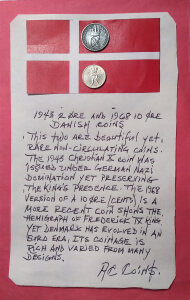 1948 2 ØRE AND 1968 10 ØRE
DANISH COINS
THIS TWO ARE BEAUTIFUL YET,
RARE NON-CIRCULATING COINS.
THE 1948 CHRISTIAN X COIN WAS
ISSUED UNDER GERMAN NAZI
DOMINATION YET PRESERVING
THE KING'S PRESENCE. THE 1968
VERSION OF A 10 ØRE/(CENTS) IS A
MORE RECENT COIN SHOWS THE
MONOGRAPH OF FREDERICK IX KING
YET DENMARK HAS EVOLVED IN AN
EURO ERA, ITS COINAGE IS
RICH AND VARIED FROM MANY
DESIGNS.
COINS